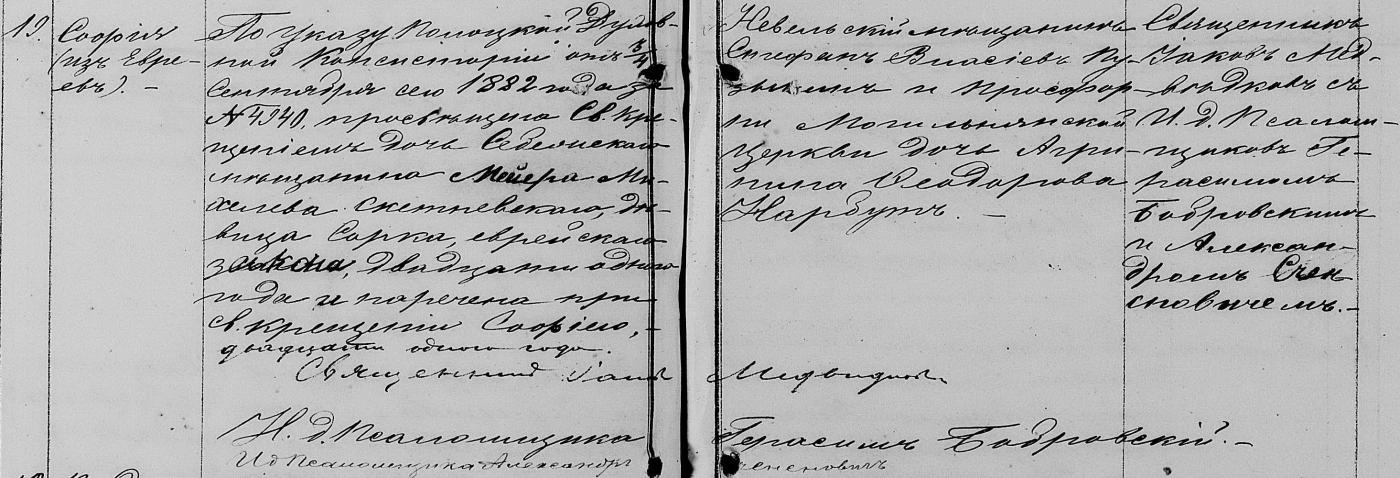 19. Софія
(изъ Евре-
евъ). -
По указу Полоцкой Духов-
ной Консисторіи отъ 3/4
Сентября сего 1882 года за
№ 4940, просвѣщена Св. Кре-
щеніемъ дочь Себежскаго
мѣщанина Мейера Ми-
хелева дѣ-
вица Сорка, еврейскаго
закона, двадцати одного
года и наречена при
св. крещеніи Софіею, -
двадцати одного года.
Невельскій мѣщанинъ
Стефанъ Власіевъ Ку-
зьминъ и просфор-
ни Могильнянской
церкви дочь Агри-
пина Ѳеодорова
Нарбутъ. -
Священникъ
Іаковъ Мед-
вѣдковъ съ
И. д. Псалом-
щиковъ Ге-
расимомъ
Бобровскимъ
и Алексан-
дромъ
-
Священникъ Іаковъ
И. д. Псаломщика Герасимъ Бобровскій. -
И д Псаломщика Александръ